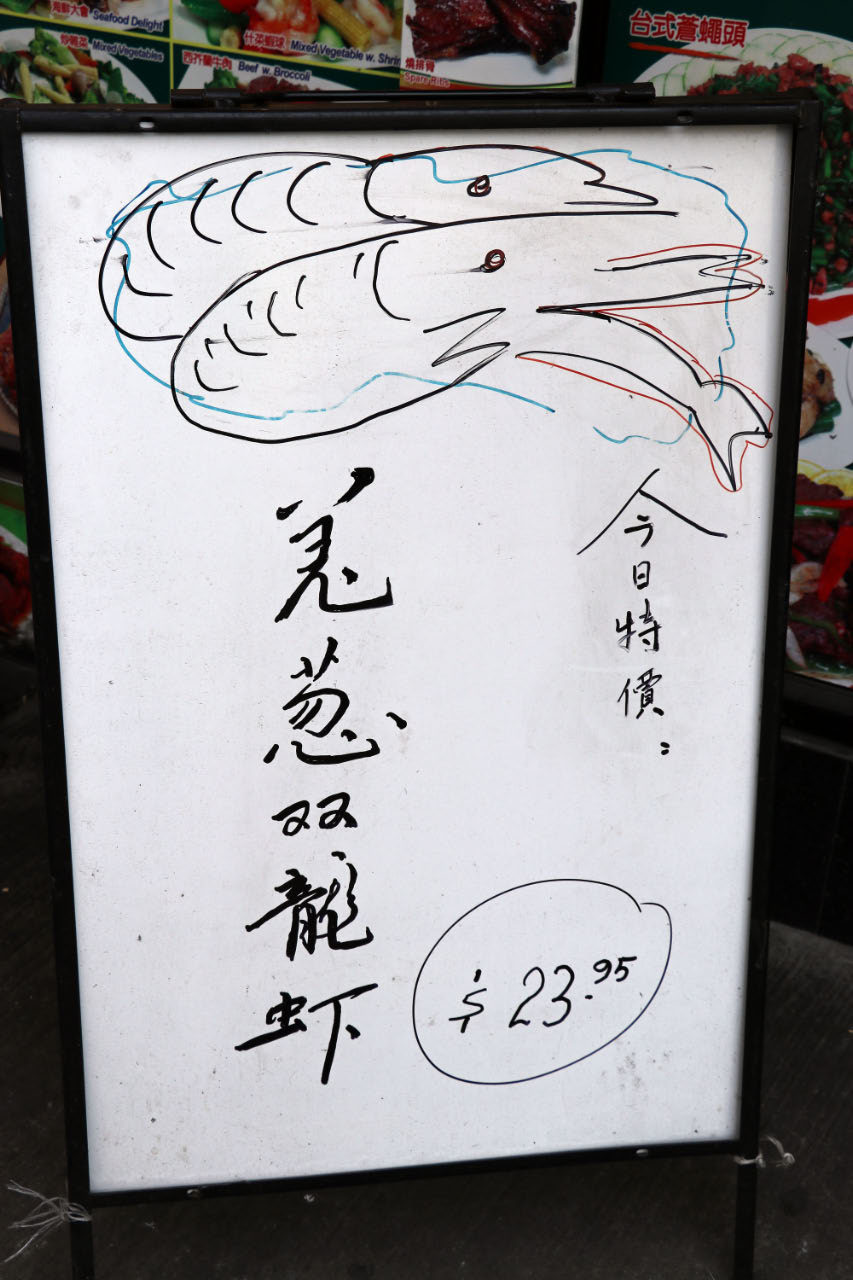 海鮮大會 Seafood Delight
炒雜菜 Mixed Vegetables
什菜蝦球 Mixed Vegetable w. Shrim
西芥蘭牛肉 Beef w. Broccoli
燒排骨
Spare Ribs
台式蒼蠅頭
今日特價:
羌葱双龍虾
$23.95